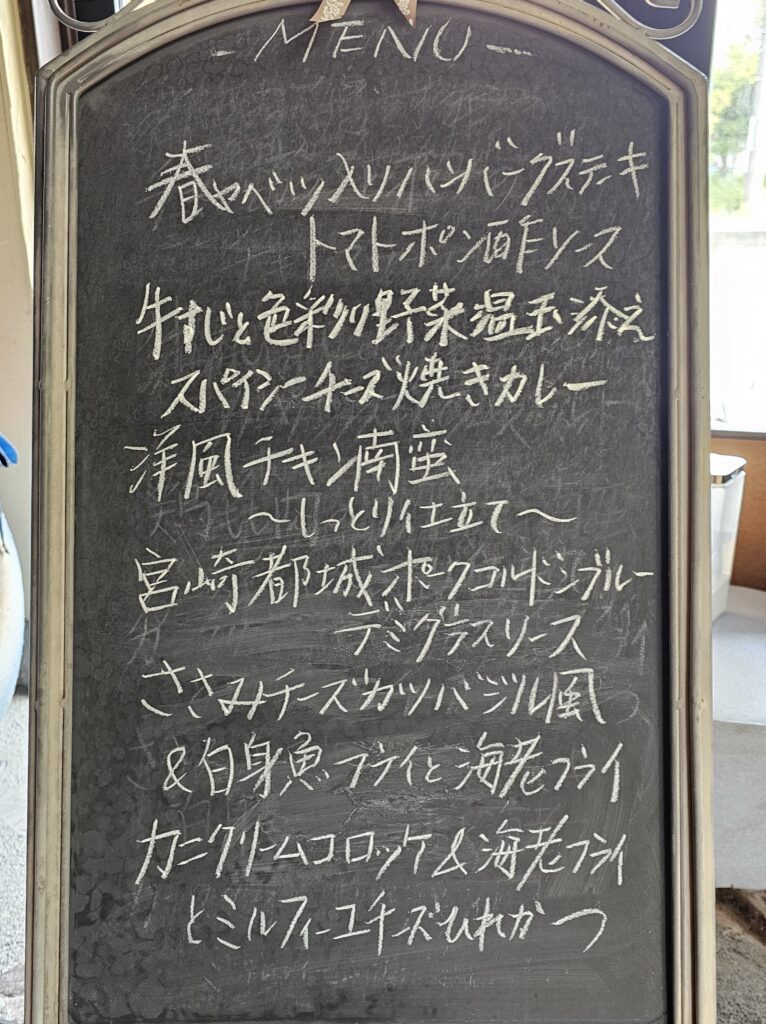 -MENU-
春キャベツ入りハンバーグステーキ
トマトポン酢ソース
牛すじと色彩り野菜温玉添え
スパイシーチーズ焼きカレー
洋風チキン南蛮
～しっとり仕立て～
宮崎都城ポークコルドンブルー
デミグラスソース
ささみチーズカツバジル風
&白身魚フライと海老フライ
カニクリームコロッケ&海老フライ
とミルフィーユチーズひれかつ